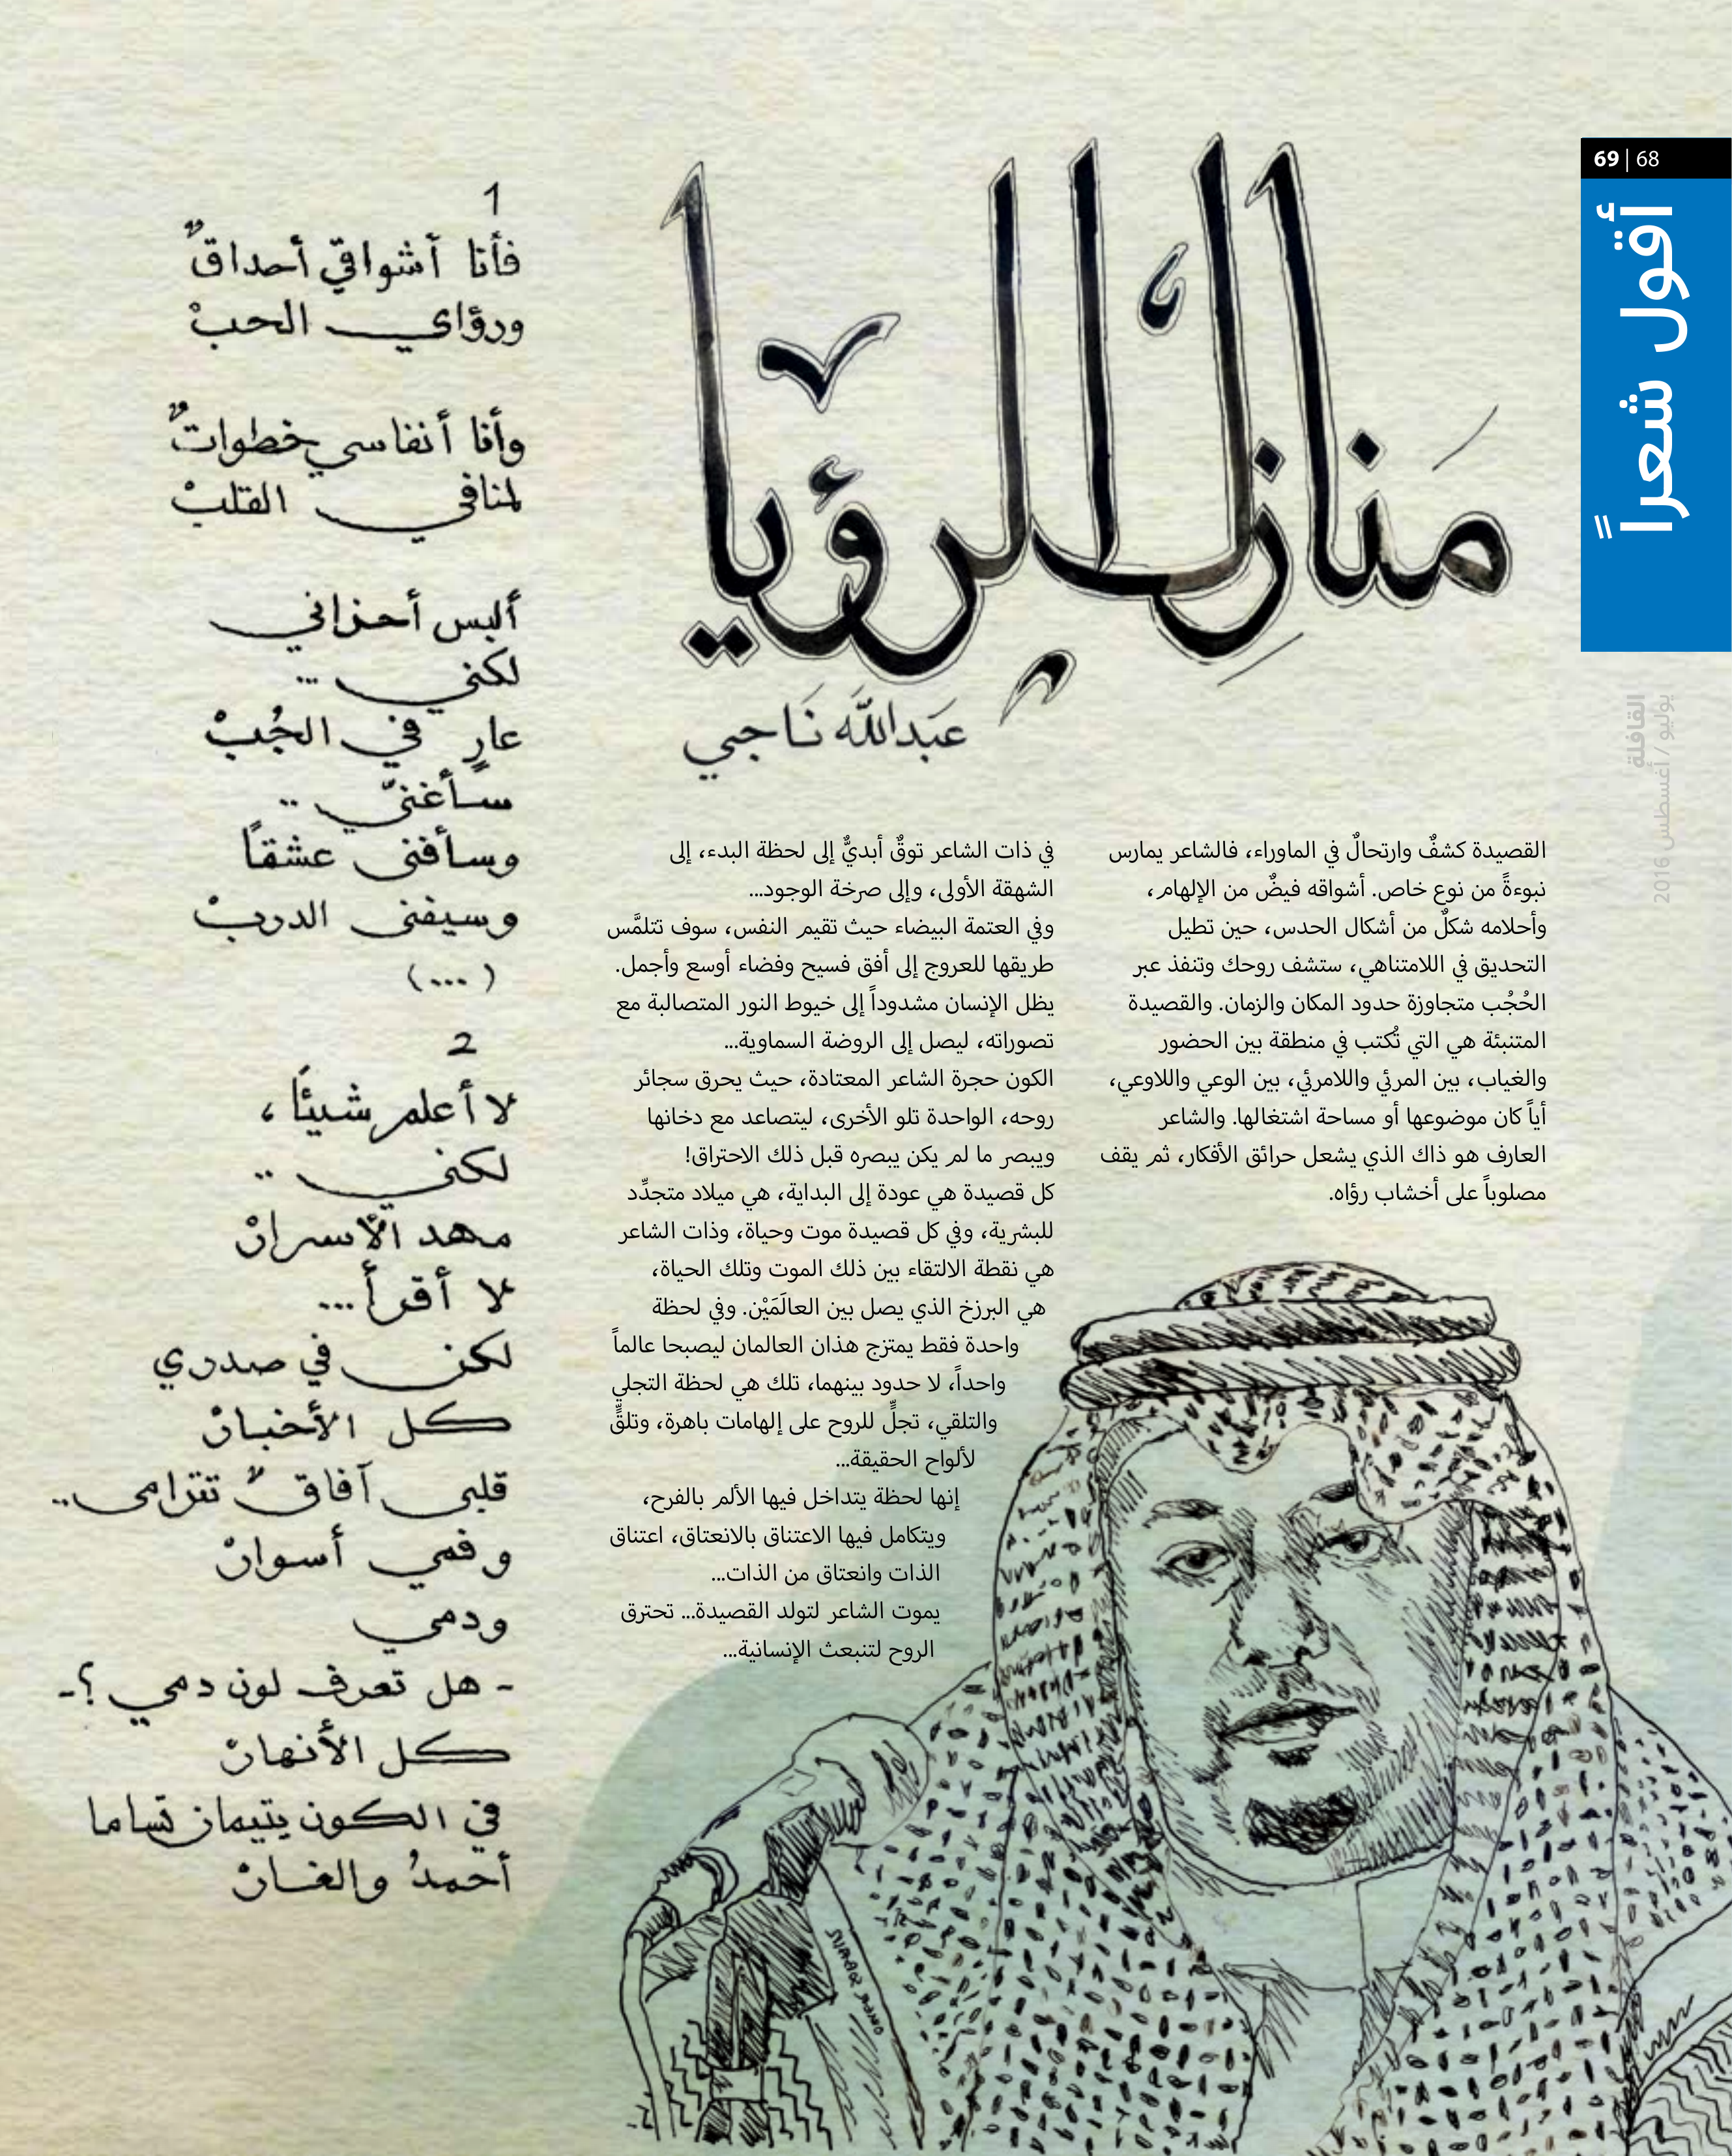 68 | 69
أقول شعراً
القافلة
يوليو / أغسطس 2016
منازل الرؤيا
عبدالله نَاجي
القصيدة كشفٌ وارتحالٌ في الماوراء، فالشاعر يمارس
نبوءةً من نوع خاص. أشواقه فيضٌ من الإلهام،
وأحلامه شكلٌ من أشكال الحدس، حين تطيل
التحديق في اللامتناهي، ستشف روحك وتنفذ عبر
الحُجُب متجاوزة حدود المكان والزمان. والقصيدة
المتنبئة هي التي تُكتب في منطقة بين الحضور
والغياب، بين المرئي واللامرئي، بين الوعي واللاوعي،
أياً كان موضوعها أو مساحة اشتغالها. والشاعر
العارف هو ذاك الذي يشعل حرائق الأفكار، ثم يقف
مصلوباً على أخشاب رؤاه.
في ذات الشاعر توقٌ أبديٌّ إلى لحظة البدء، إلى
الشهقة الأولى، وإلى صرخة الوجود...
وفي العتمة البيضاء حيث تقيم النفس، سوف تتلمَّس
طريقها للعروج إلى أفق فسيح وفضاء أوسع وأجمل.
يظل الإنسان مشدوداً إلى خيوط النور المتصالبة مع
تصوراته، ليصل إلى الروضة السماوية...
الكون حجرة الشاعر المعتادة، حيث يحرق سجائر
روحه، الواحدة تلو الأخرى، ليتصاعد مع دخانها
ويبصر ما لم يكن يبصره قبل ذلك الاحتراق!
كل قصيدة هي عودة إلى البداية، هي ميلاد متجدِّد
للبشرية، وفي كل قصيدة موت وحياة، وذات الشاعر
هي نقطة الالتقاء بين ذلك الموت وتلك الحياة،
هي البرزخ الذي يصل بين العالَمَيْن. وفي لحظة
واحدة فقط يمتزج هذان العالمان ليصبحا عالماً
واحداً، لا حدود بينهما، تلك هي لحظة التجلي
والتلقي، تجلٍّ للروح على إلهامات باهرة، وتلقٍّ
لألواح الحقيقة...
إنها لحظة يتداخل فيها الألم بالفرح،
ويتكامل فيها الاعتناق بالانعتاق، اعتناق
الذات وانعتاق من الذات...
يموت الشاعر لتولد القصيدة... تحترق
الروح لتنبعث الإنسانية...
1
فأنا أشواقي أحداقٌ
ورؤاي الحبْ
وأنا أنفاسي خطواتٌ
لمنافي القلبْ
ألبس أحزاني
لكني ...
عارٍ في الجُبْ
سأغنّي ..
وسأفنى عشقاً
وسيفنى الدربْ
(...)
2
لا أعلم شيئًا ،
لكني ..
مهد الأسرارْ
لا أقرأ ...
لكن في صدري
كل الأخبارْ
قلبي آفاقٌ تترامى ..
وفمي أسوارْ
ودمي
- هل تعرف لون دمي ؟-
كل الأنهارْ
في الكون يتيمان تساما
أحمدُ والغارْ